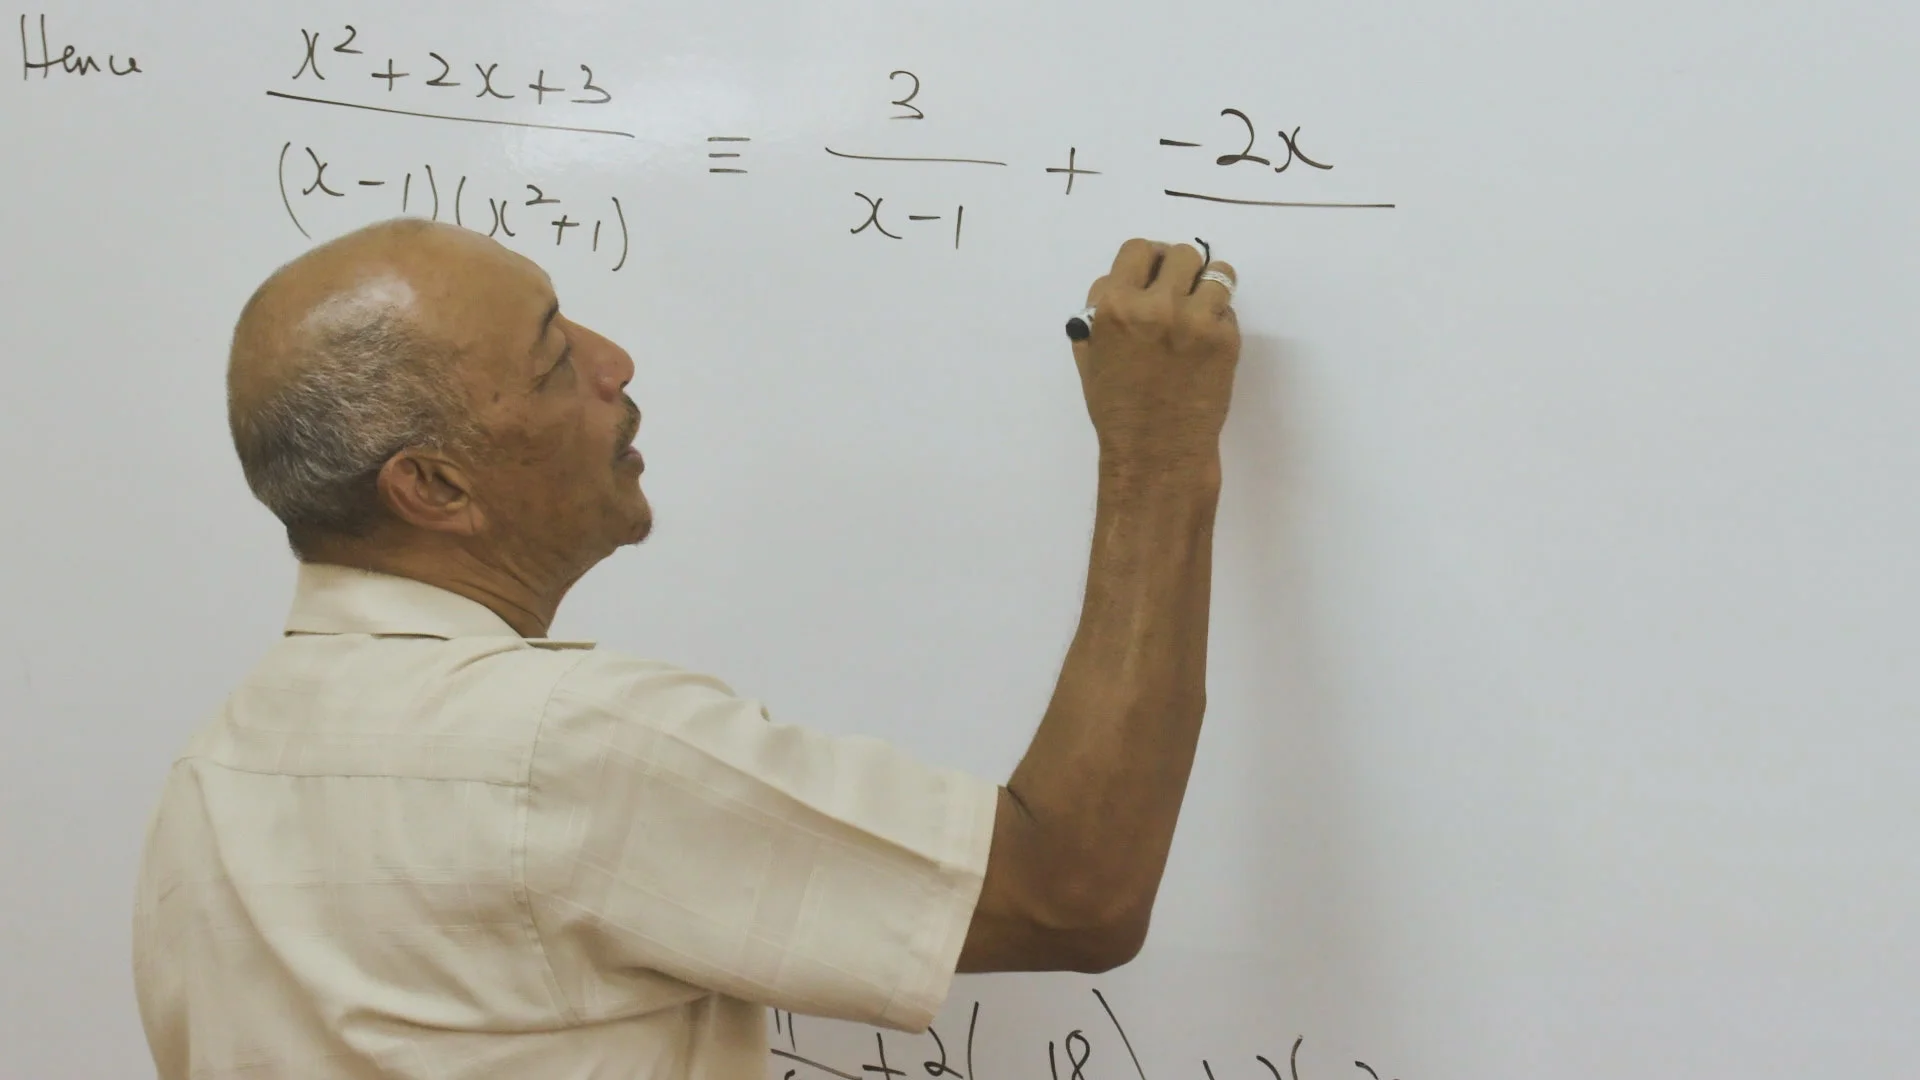 Hence x² + 2x + 3 / (x - 1)(x² + 1) ≡ 3 / x - 1 + -2x /
+ 2( 18 )